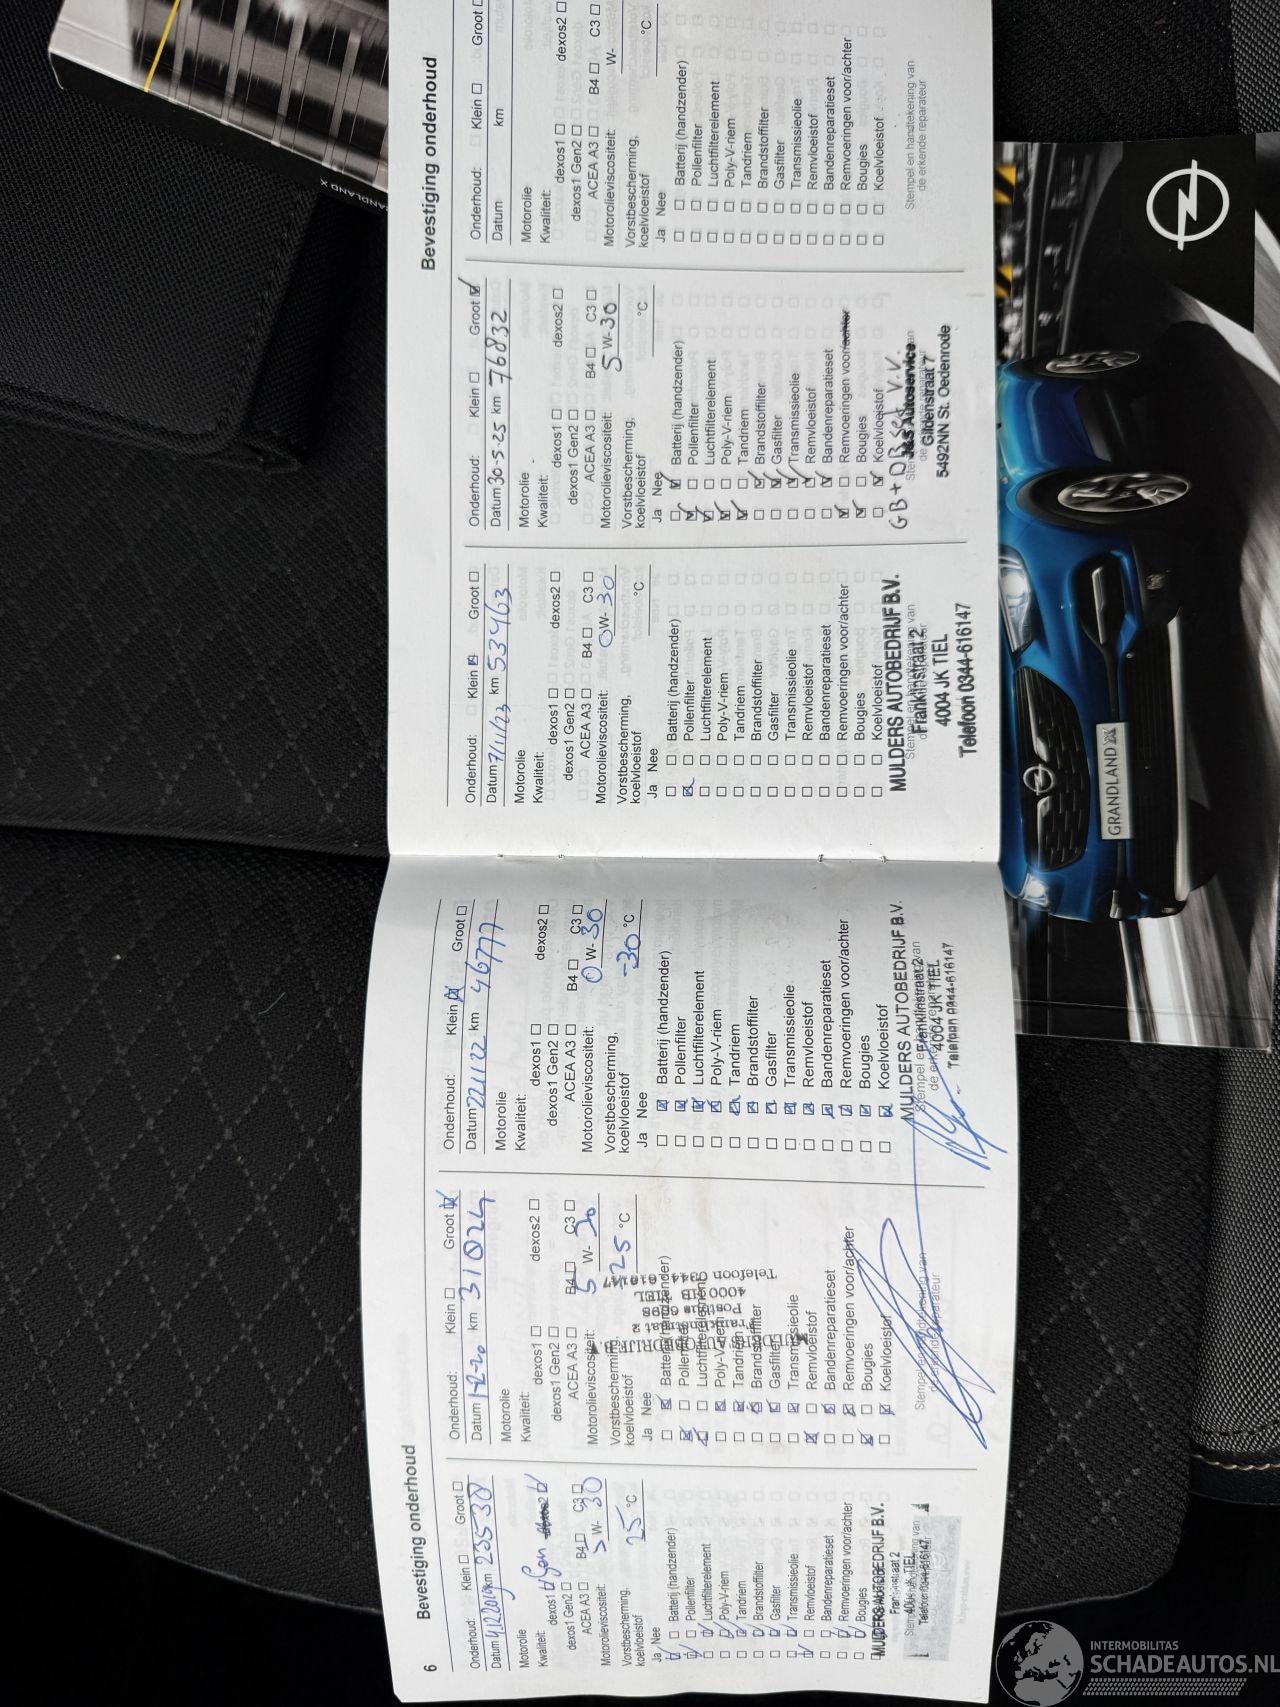 Bevestiging onderhoud
6
Onderhoud: Klein Groot
Datum km 23530
Motorolie
Kwaliteit: dexos1 dexos2
dexos1 Gen2
ACEA A3 B4 C3
Motorolieviscositeit: W- 30
Vorstbescherming,
koelvloeistof 25 °C
Ja Nee
Batterij (handzender)
Pollenfilter
Luchtfilterelement
Poly-V-riem
Tandriem
Brandstoffilter
Gasfilter
Transmissieolie
Remvloeistof
Bandenreparatieset
Remvoeringen voor/achter
Bougies
MULDERS AUTOBEDRIJF B.V.
4004 JK TIEL
Telefoon 0344-616147
Onderhoud: Klein Groot
Datum 1-2-20 km 31024
Motorolie
Kwaliteit: dexos1 dexos2
dexos1 Gen2
ACEA A3 B4 C3
Motorolieviscositeit: 5 W- 30
Vorstbescherming,
koelvloeistof -25 °C
Ja Nee
Batterij (handzender)
Pollenfilter
Luchtfilterelement
Poly-V-riem
Tandriem
Brandstoffilter
Gasfilter
Transmissieolie
Remvloeistof
Bandenreparatieset
Remvoeringen voor/achter
Bougies
Koelvloeistof
Stempel en handtekening van
de erkende reparateur
Onderhoud: Klein Groot
Datum 22/11/22 km 46777
Motorolie
Kwaliteit: dexos1 dexos2
dexos1 Gen2
ACEA A3 B4 C3
Motorolieviscositeit: 0 W- 30
Vorstbescherming,
koelvloeistof -30 °C
Ja Nee
Batterij (handzender)
Pollenfilter
Luchtfilterelement
Poly-V-riem
Tandriem
Brandstoffilter
Gasfilter
Transmissieolie
Remvloeistof
Bandenreparatieset
Remvoeringen voor/achter
Bougies
Koelvloeistof
MULDERS AUTOBEDRIJF B.V.
Stempel en handtekening van
Franklinstraat 2
de erkende reparateur
4004 JK TIEL
Telefoon 0344-616147
Bevestiging onderhoud
Onderhoud: Klein Groot
Datum 7/11/23 km 53463
Motorolie
Kwaliteit: dexos1 dexos2
dexos1 Gen2
ACEA A3 B4 C3
Motorolieviscositeit: 0 W- 30
Vorstbescherming,
koelvloeistof °C
Ja Nee
Batterij (handzender)
Pollenfilter
Luchtfilterelement
Poly-V-riem
Tandriem
Brandstoffilter
Gasfilter
Transmissieolie
Remvloeistof
Bandenreparatieset
Remvoeringen voor/achter
Bougies
Koelvloeistof
MULDERS AUTOBEDRIJF B.V.
Franklinstraat 2
4004 JK TIEL
Telefoon 0344-616147
Onderhoud: Klein Groot
Datum 30-5-25 km 76832
Motorolie
Kwaliteit: dexos1 dexos2
dexos1 Gen2
ACEA A3 B4 C3
Motorolieviscositeit: 5 W-30
Vorstbescherming,
koelvloeistof °C
Ja Nee
Batterij (handzender)
Pollenfilter
Luchtfilterelement
Poly-V-riem
Tandriem
Brandstoffilter
Gasfilter
Transmissieolie
Remvloeistof
Bandenreparatieset
Remvoeringen voor/achter
Bougies
Koelvloeistof
GB + DB set V.V.
J&S Autoservice
Gildenstraat 7
5492NN St. Oedenrode
Onderhoud: Klein Groot
Datum km
Motorolie
Kwaliteit: dexos1 dexos2
dexos1 Gen2
ACEA A3 B4 C3
Motorolieviscositeit: W-
Vorstbescherming,
koelvloeistof °C
Ja Nee
Batterij (handzender)
Pollenfilter
Luchtfilterelement
Poly-V-riem
Tandriem
Brandstoffilter
Gasfilter
Transmissieolie
Remvloeistof
Bandenreparatieset
Remvoeringen voor/achter
Bougies
Koelvloeistof
Stempel en handtekening van
de erkende reparateur
GRANDLAND X
INTERMOBILITAS
SCHADEAUTOS.NL